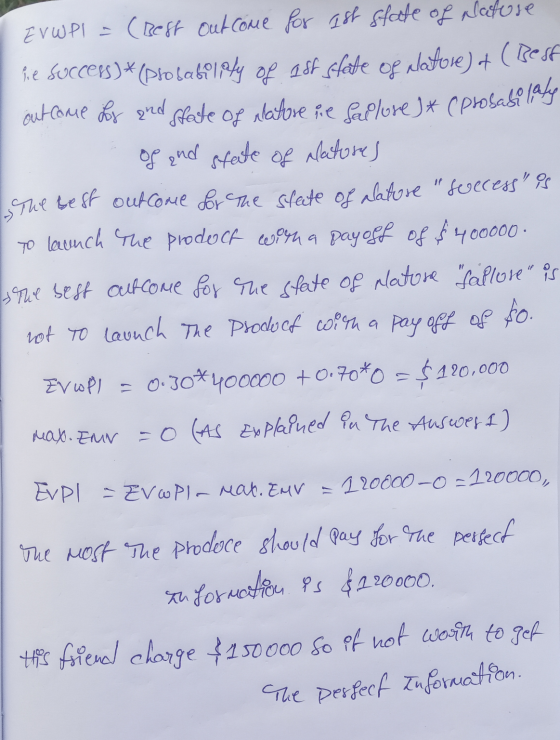 EVWPI = (Best outcome for 1st state of Nature
i.e success)*(probability of 1st state of Nature) + (Best
outcome for 2nd state of Nature i.e failure)* (probability
of 2nd state of Nature)
→The best outcome for the state of Nature "success" is
To launch the product with a payoff of $400000.
→The best outcome for the state of Nature "failure" is
not To launch The Product with a pay off of $0.
EVWPI = 0.30*400000 + 0.70*0 = $120,000
Max. EMV = 0 (As Explained in The Answer 1)
EVPI = EVWPI - Max. EMV = 120000-0 = 120000,,
The most the produce should pay for the perfect
Information is $120000.
His friend charge $150000 so it not worth to get
The perfect Information.